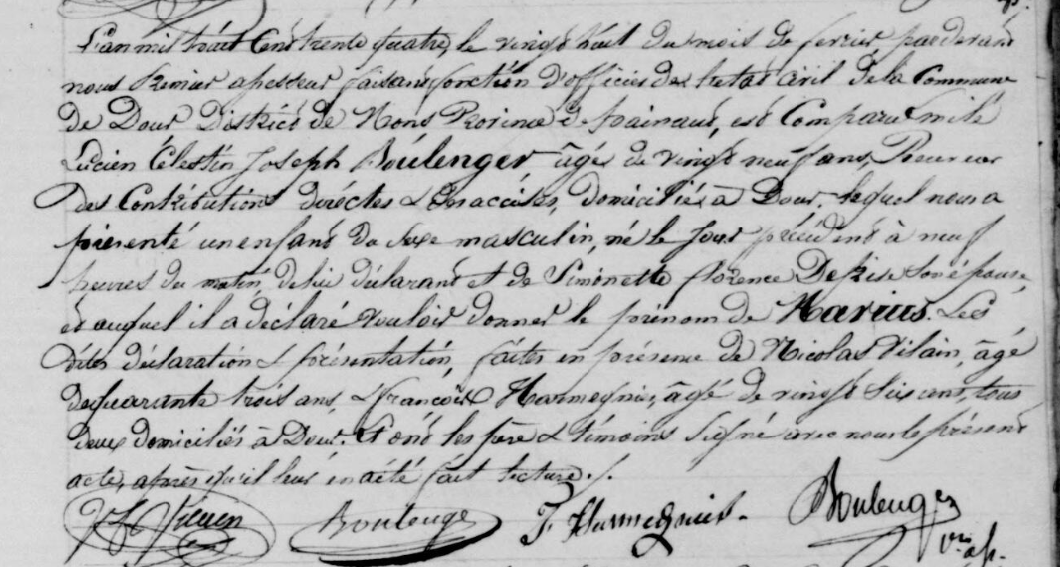 L'an mil huit Cent trente quatre, le vingt huit du mois de fevrier pardevant
nous Premier assesseur faisant fonction d'officier de l'etat civil de la Commune
de Dour District de Mons Province d'hainaut, est Comparu Emile
Lucien Célestin Joseph Boulenger âgé de vingt neuf ans, Receveur
des Contributions directes & des accises, domicilié à Dour, lequel nous a
présenté un enfant du sexe masculin, né le jour précédent à neuf
heures du matin, de lui déclarant et de Simonette florence Depise son épouse,
et auquel il a déclaré vouloir donner le prénom de Marius. Les
dites déclaration & présentation, faites en présence de Nicolas Vilain, âgé
de quarante trois ans, & françois Harmegnies, âgé de vingt six ans, tous
deux domiciliés à Dour. Et ont les père & témoins signé avec nous le présent
acte, après qu'il leur en a été fait lecture./.
Boulenger F. Harmegnies. Boulenger